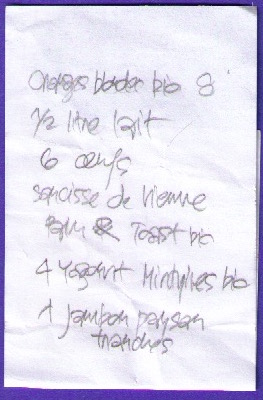 Oranges blondes bio 8
1/2 litre lait
6 œufs
saucisse de Vienne
Pain & Toast bio
4 Yogourt Myrtilles bio
1 jambon paysan
tranches